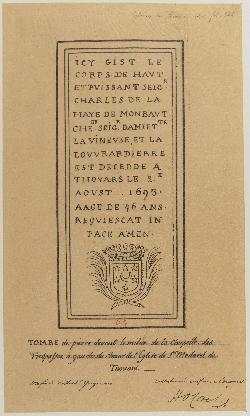 ICY GIST LE
CORPS DE HAUT
ET PUISSANT SEIG.
CHARLES DE LA
HAYE DE MONBAUT
CHE. SEIG. DAMIET
LA VINEUSE, ET LA
LOUVRARDIERRE
EST DECEDE A
THOUARS LE 2.
AOUST . 1693.
AAGE DE 46 ANS.
REQUIESCAT IN
PACE AMEN.
TOMBE de pierre devant le milieu de la Chapelle des
Trepassez, à gauche du choeur de l'Eglise de St. Medard de
Thouars.